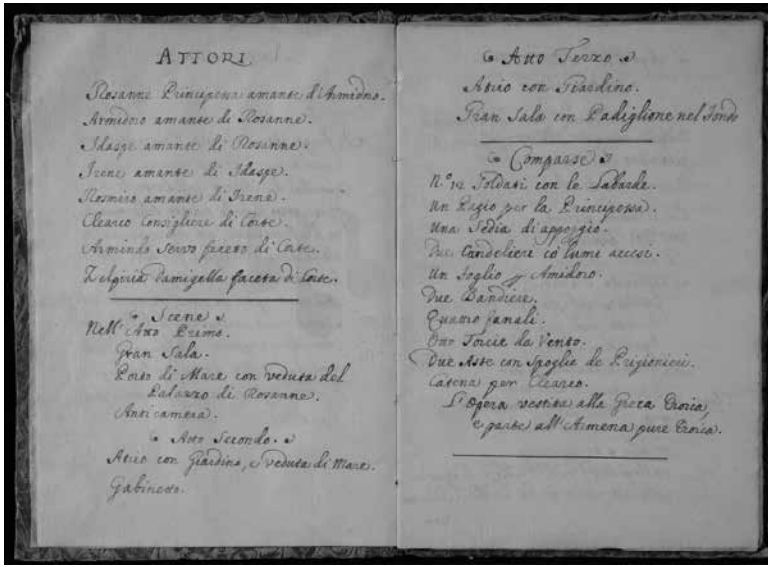 ATTORI
Rosanne Principessa amante d'Armidoro.
Armidoro amante di Rosanne.
Idaspe amante di Rosanne.
Irene amante di Idaspe.
Rosmiro amante di Irene.
Clearco Consigliere di Corte.
Armindo Servo faceto di Corte.
Damigella faceta di Corte.
Scene
Nell'Atto Primo.
Gran Sala.
Porto di Mare con veduta del
Palazzo di Rosanne.
Anticamera.
Atto Secondo.
Atrio con Giardino, e veduta di Mare.
Gabinetto.
Atto Terzo
Atrio con Giardino.
Gran Sala con Padiglione nel Fondo
Comparse
N.º 12 Soldati con le Labarde.
Un Pagio per la Principessa.
Una Sedia di appoggio.
Due Candeliere cò lumi accesi.
Un Foglio Amidoro.
Due Bandiere.
Quattro fanali.
Torcie da Vento.
Due Aste con Spoglie de Prigionieri.
Catena per Clearco.
L'Opera vestita alla Greca Eroica,
e parte all'Armena pure Eroica.